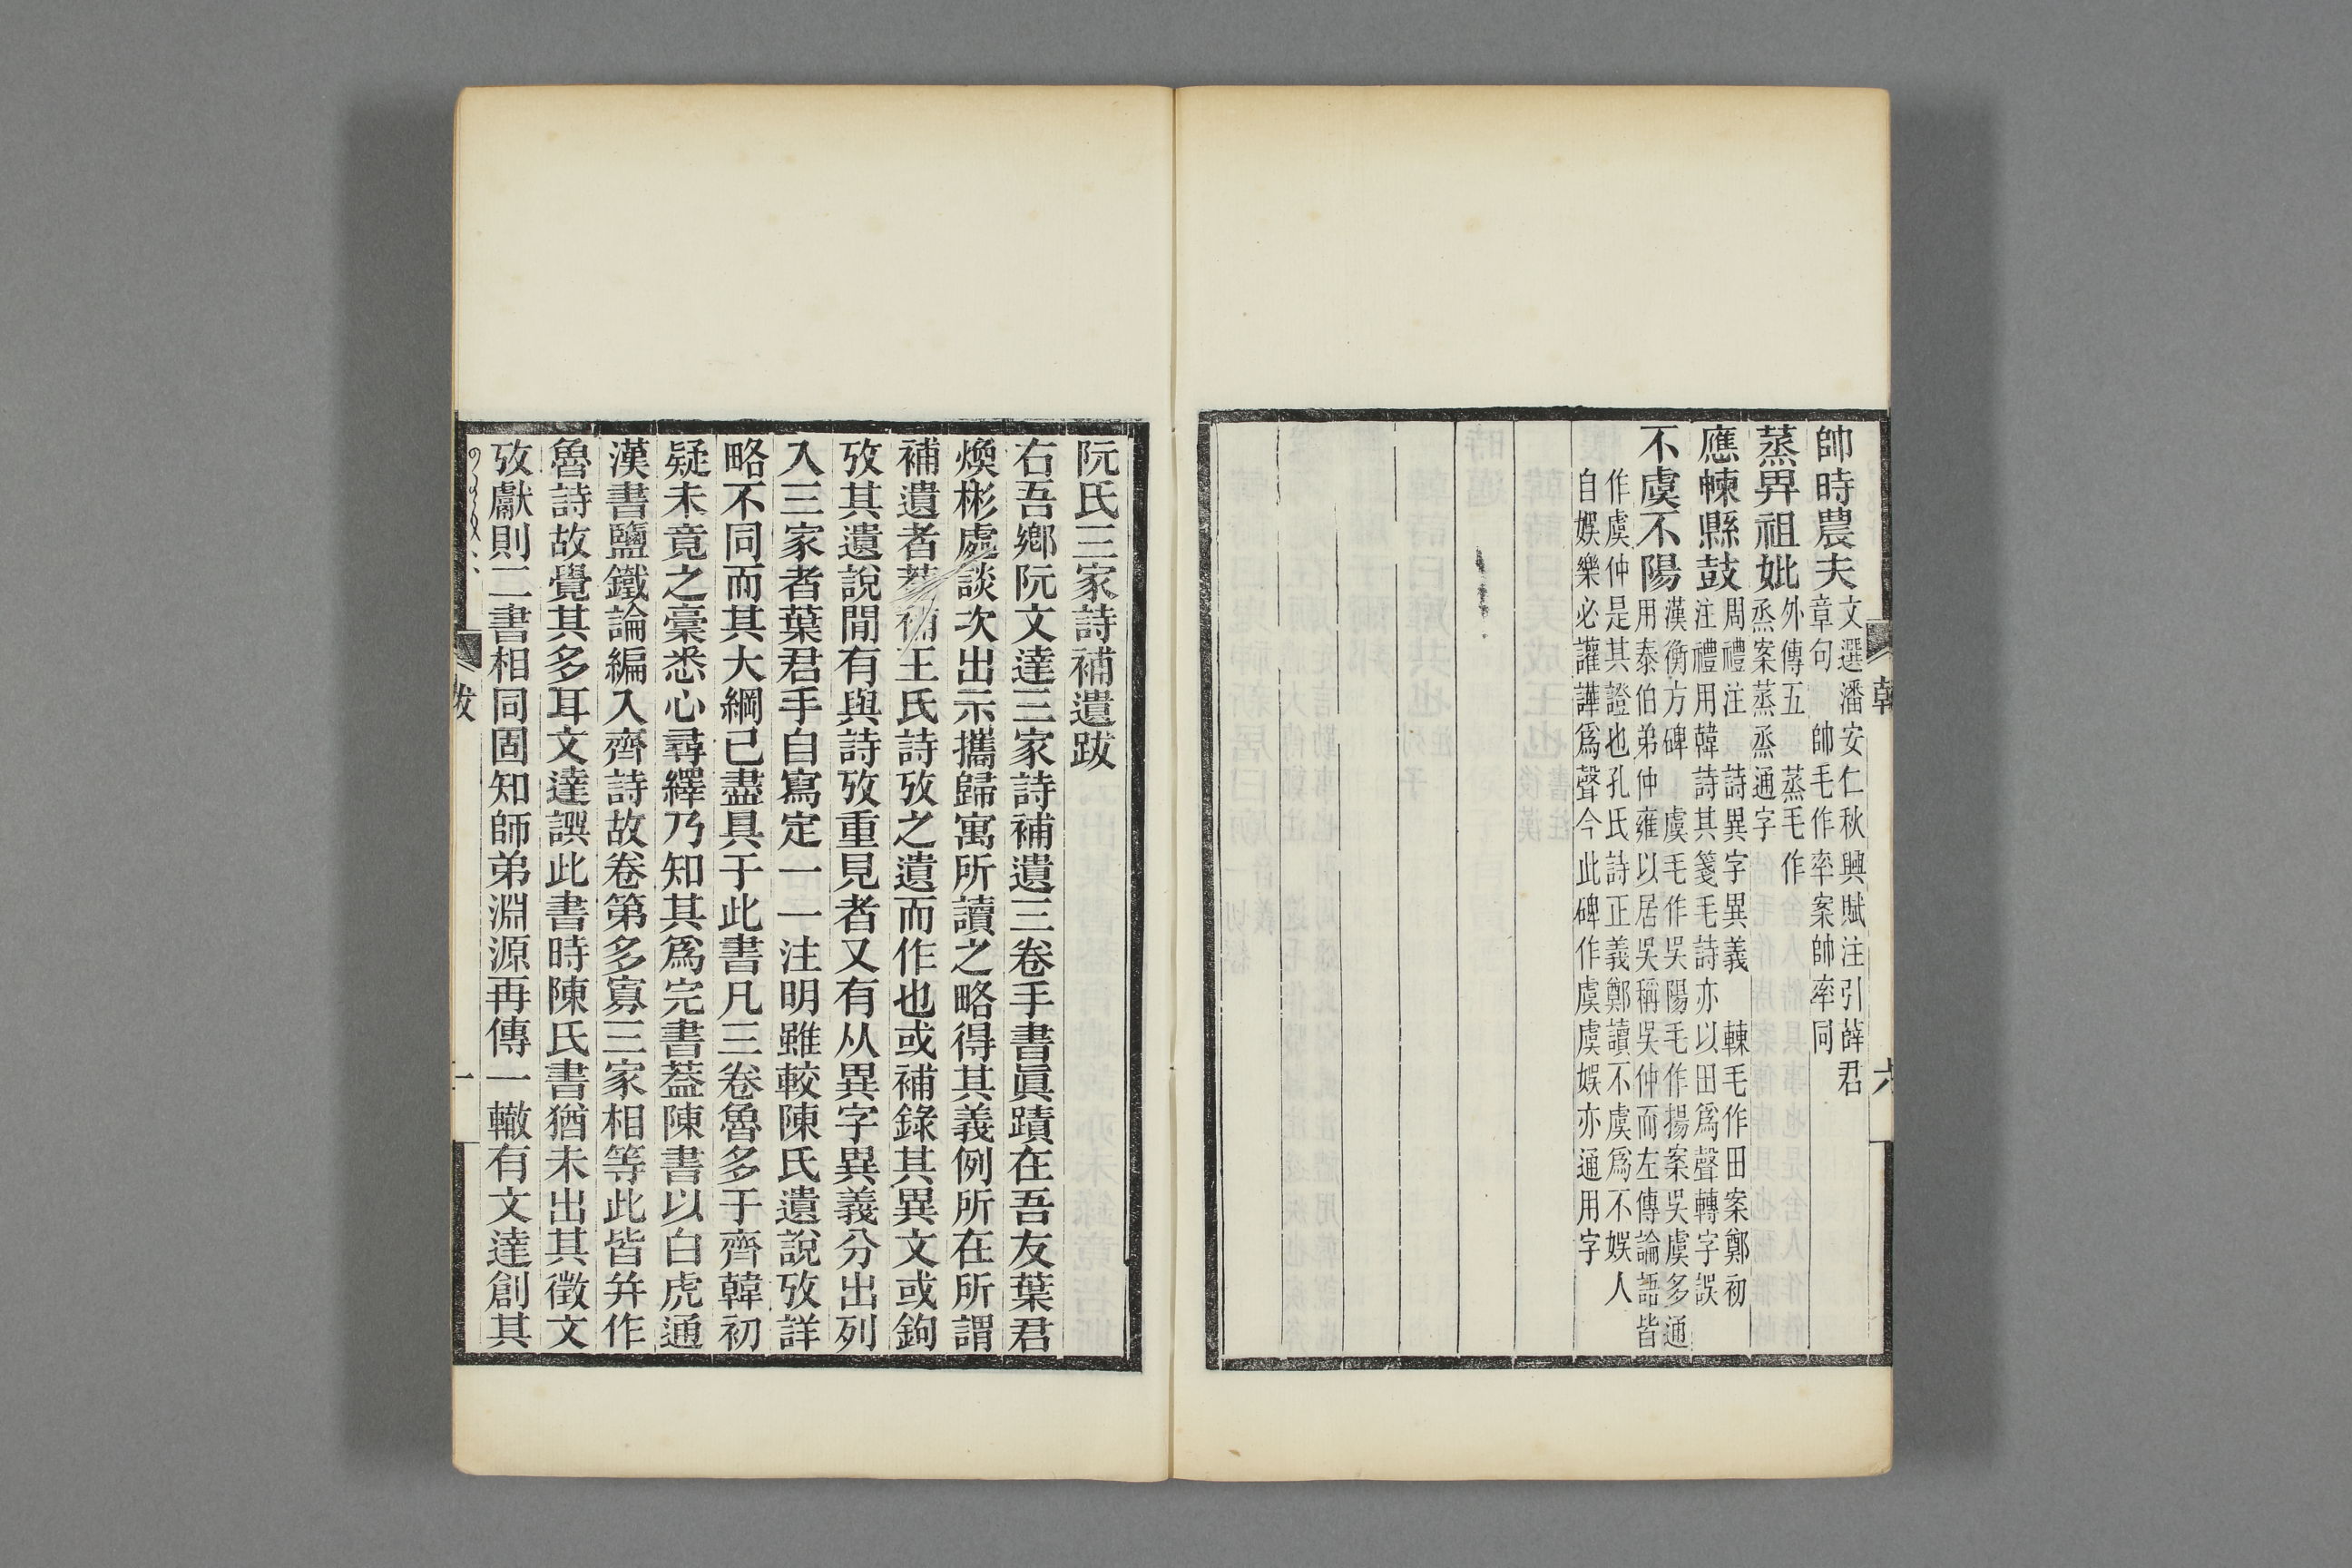 帥時農夫文選潘安仁秋興賦注引薛君
章句 帥毛作率案帥率同
蒸畀祖妣外傳五 蒸毛作
烝案蒸烝通字
應朄縣鼓周禮注 詩異字異義 朄毛作田案鄭初
注禮用韓詩其箋毛詩亦以田爲聲轉字誤
不虞不陽漢衡方碑 虞毛作吳陽毛作揚案吳虞多通
用泰伯弟仲雍以居吳稱吳仲而左傳論語皆
作虞仲是其證也孔氏詩正義鄭讀不虞爲不娛人
自娛樂必讙譁爲聲今此碑作虞虞娛亦通用字
六
阮氏三家詩補遺跋
右吾鄉阮文達三家詩補遺三卷手書眞蹟在吾友葉君
煥彬處談次出示攜歸寓所讀之略得其義例所在所謂
補遺者葢補王氏詩攷之遺而作也或補錄其異文或鉤
攷其遺說閒有與詩攷重見者又有从異字異義分出列
入三家者葉君手自寫定一一注明雖較陳氏遺說攷詳
略不同而其大綱已盡具于此書凡三卷魯多于齊韓初
疑未竟之稾悉心尋繹乃知其爲完書葢陳書以白虎通
漢書鹽鐵論編入齊詩故卷第多寡三家相等此皆幷作
魯詩故覺其多耳文達譔此書時陳氏書猶未出其徵文
攷獻則二書相同固知師弟淵源再傳一轍有文達創其
跋
一